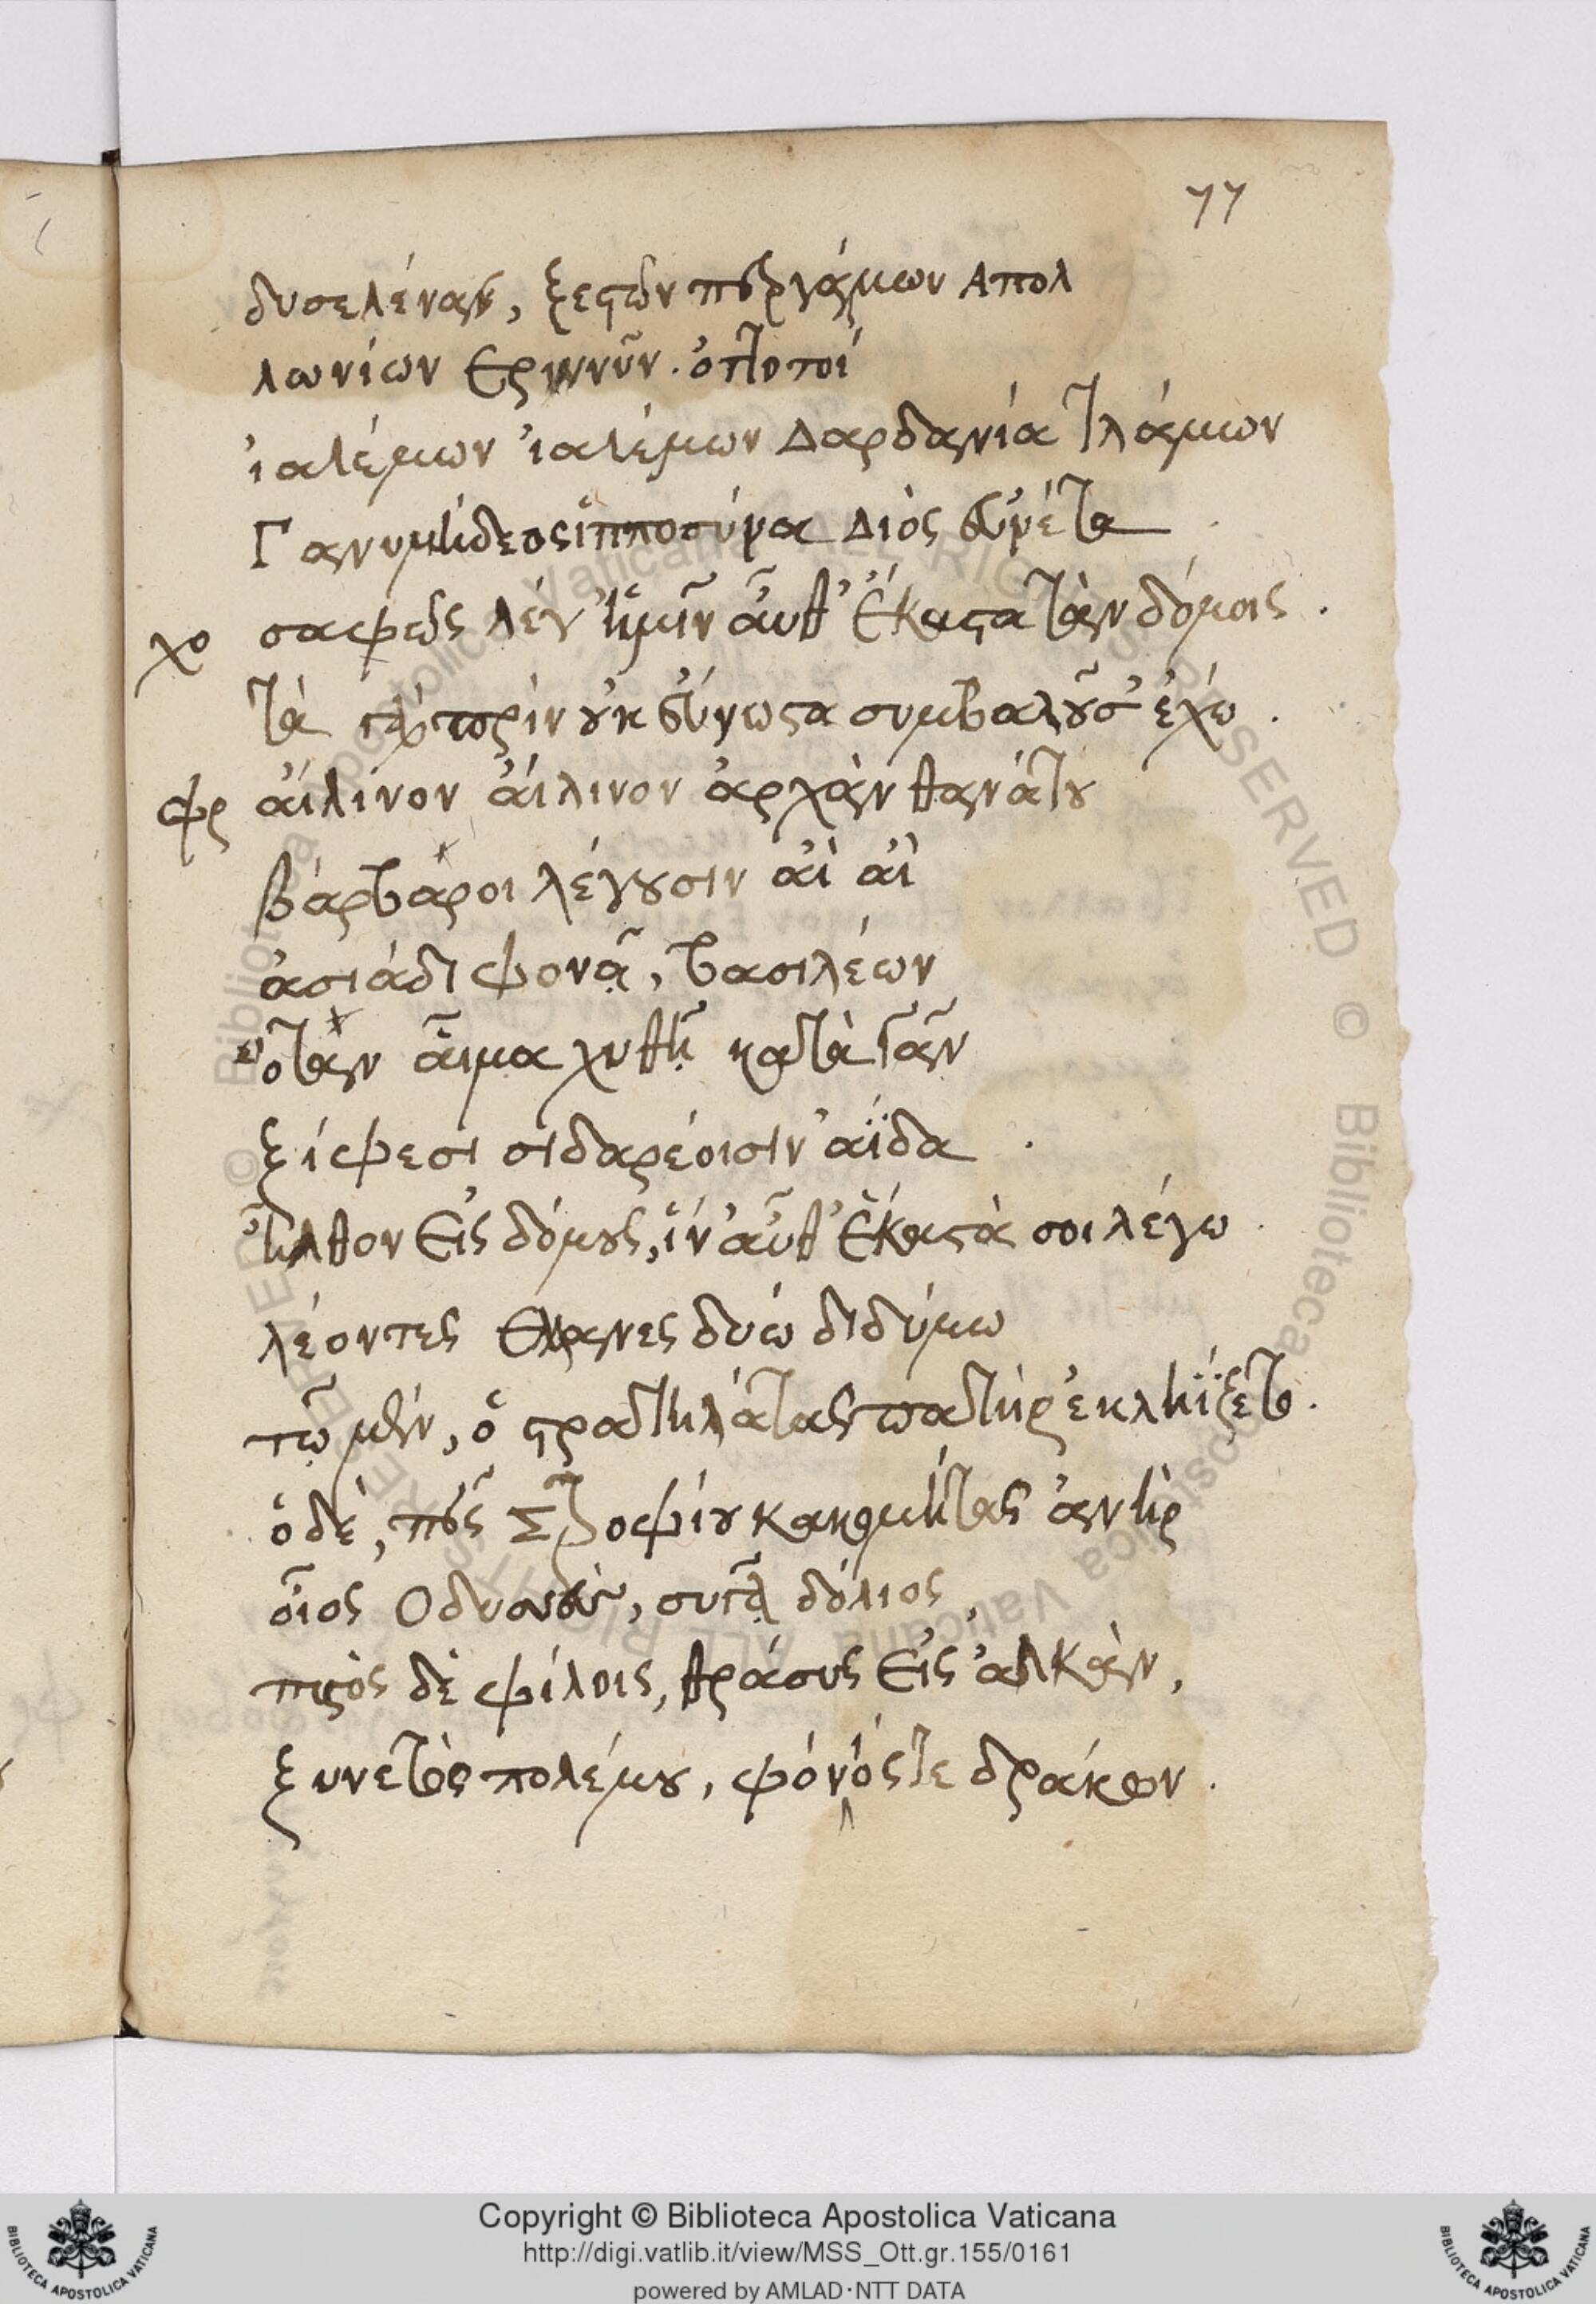 77
δυσελέναν, ξεστῶν περγάμων Απολ
λωνίων Εριννῦν. ὀττοτοί
ἰαλέμων ἰαλέμων Δαρδανία τλάμων
Γανυμήδεος ἱπποσύνα Διὸς εὐνέτα
χο σαφῶς λέγ' ἡμῖν αὖθ' ἕκαστα τὰν δόμοις.
τὰ γὰρ πρὶν οὐκ εὔγνωστα συμβαλοῦσ' ἔχω.
φρ αἴλινον αἴλινον ἀρχὰν θανάτου
βάρβαροι λέγουσιν αἲ αἲ
ἀσιάδι φονᾷ, βασιλέων
ὅταν αἷμα χυθῇ κατὰ γᾶν
ξίφεσι σιδαρέοισιν ἀΐδα.
ἦλθον εἰς δόμους, ἵν' αὖθ' ἕκαστά σοι λέγω.
λέοντες Ελλανες δύω διδύμω
τῷ μὲν, ὁ στρατηλάτας πατὴρ ἐκλῄζετο.
ὁ δὲ, παῖς Στροφίου κακομήτας ἀνὴρ
οἷος Οδυσσεὺς, σιγᾷ δόλιος
πιστὸς δὲ φίλοις, θρασὺς εἰς ἀλκὰν,
ξυνετὸς πολέμου, φόνιός τε δράκων.
Copyright © Biblioteca Apostolica Vaticana
http://digi.vatlib.it/view/MSS_Ott.gr.155/0161
powered by AMLAD·NTT DATA